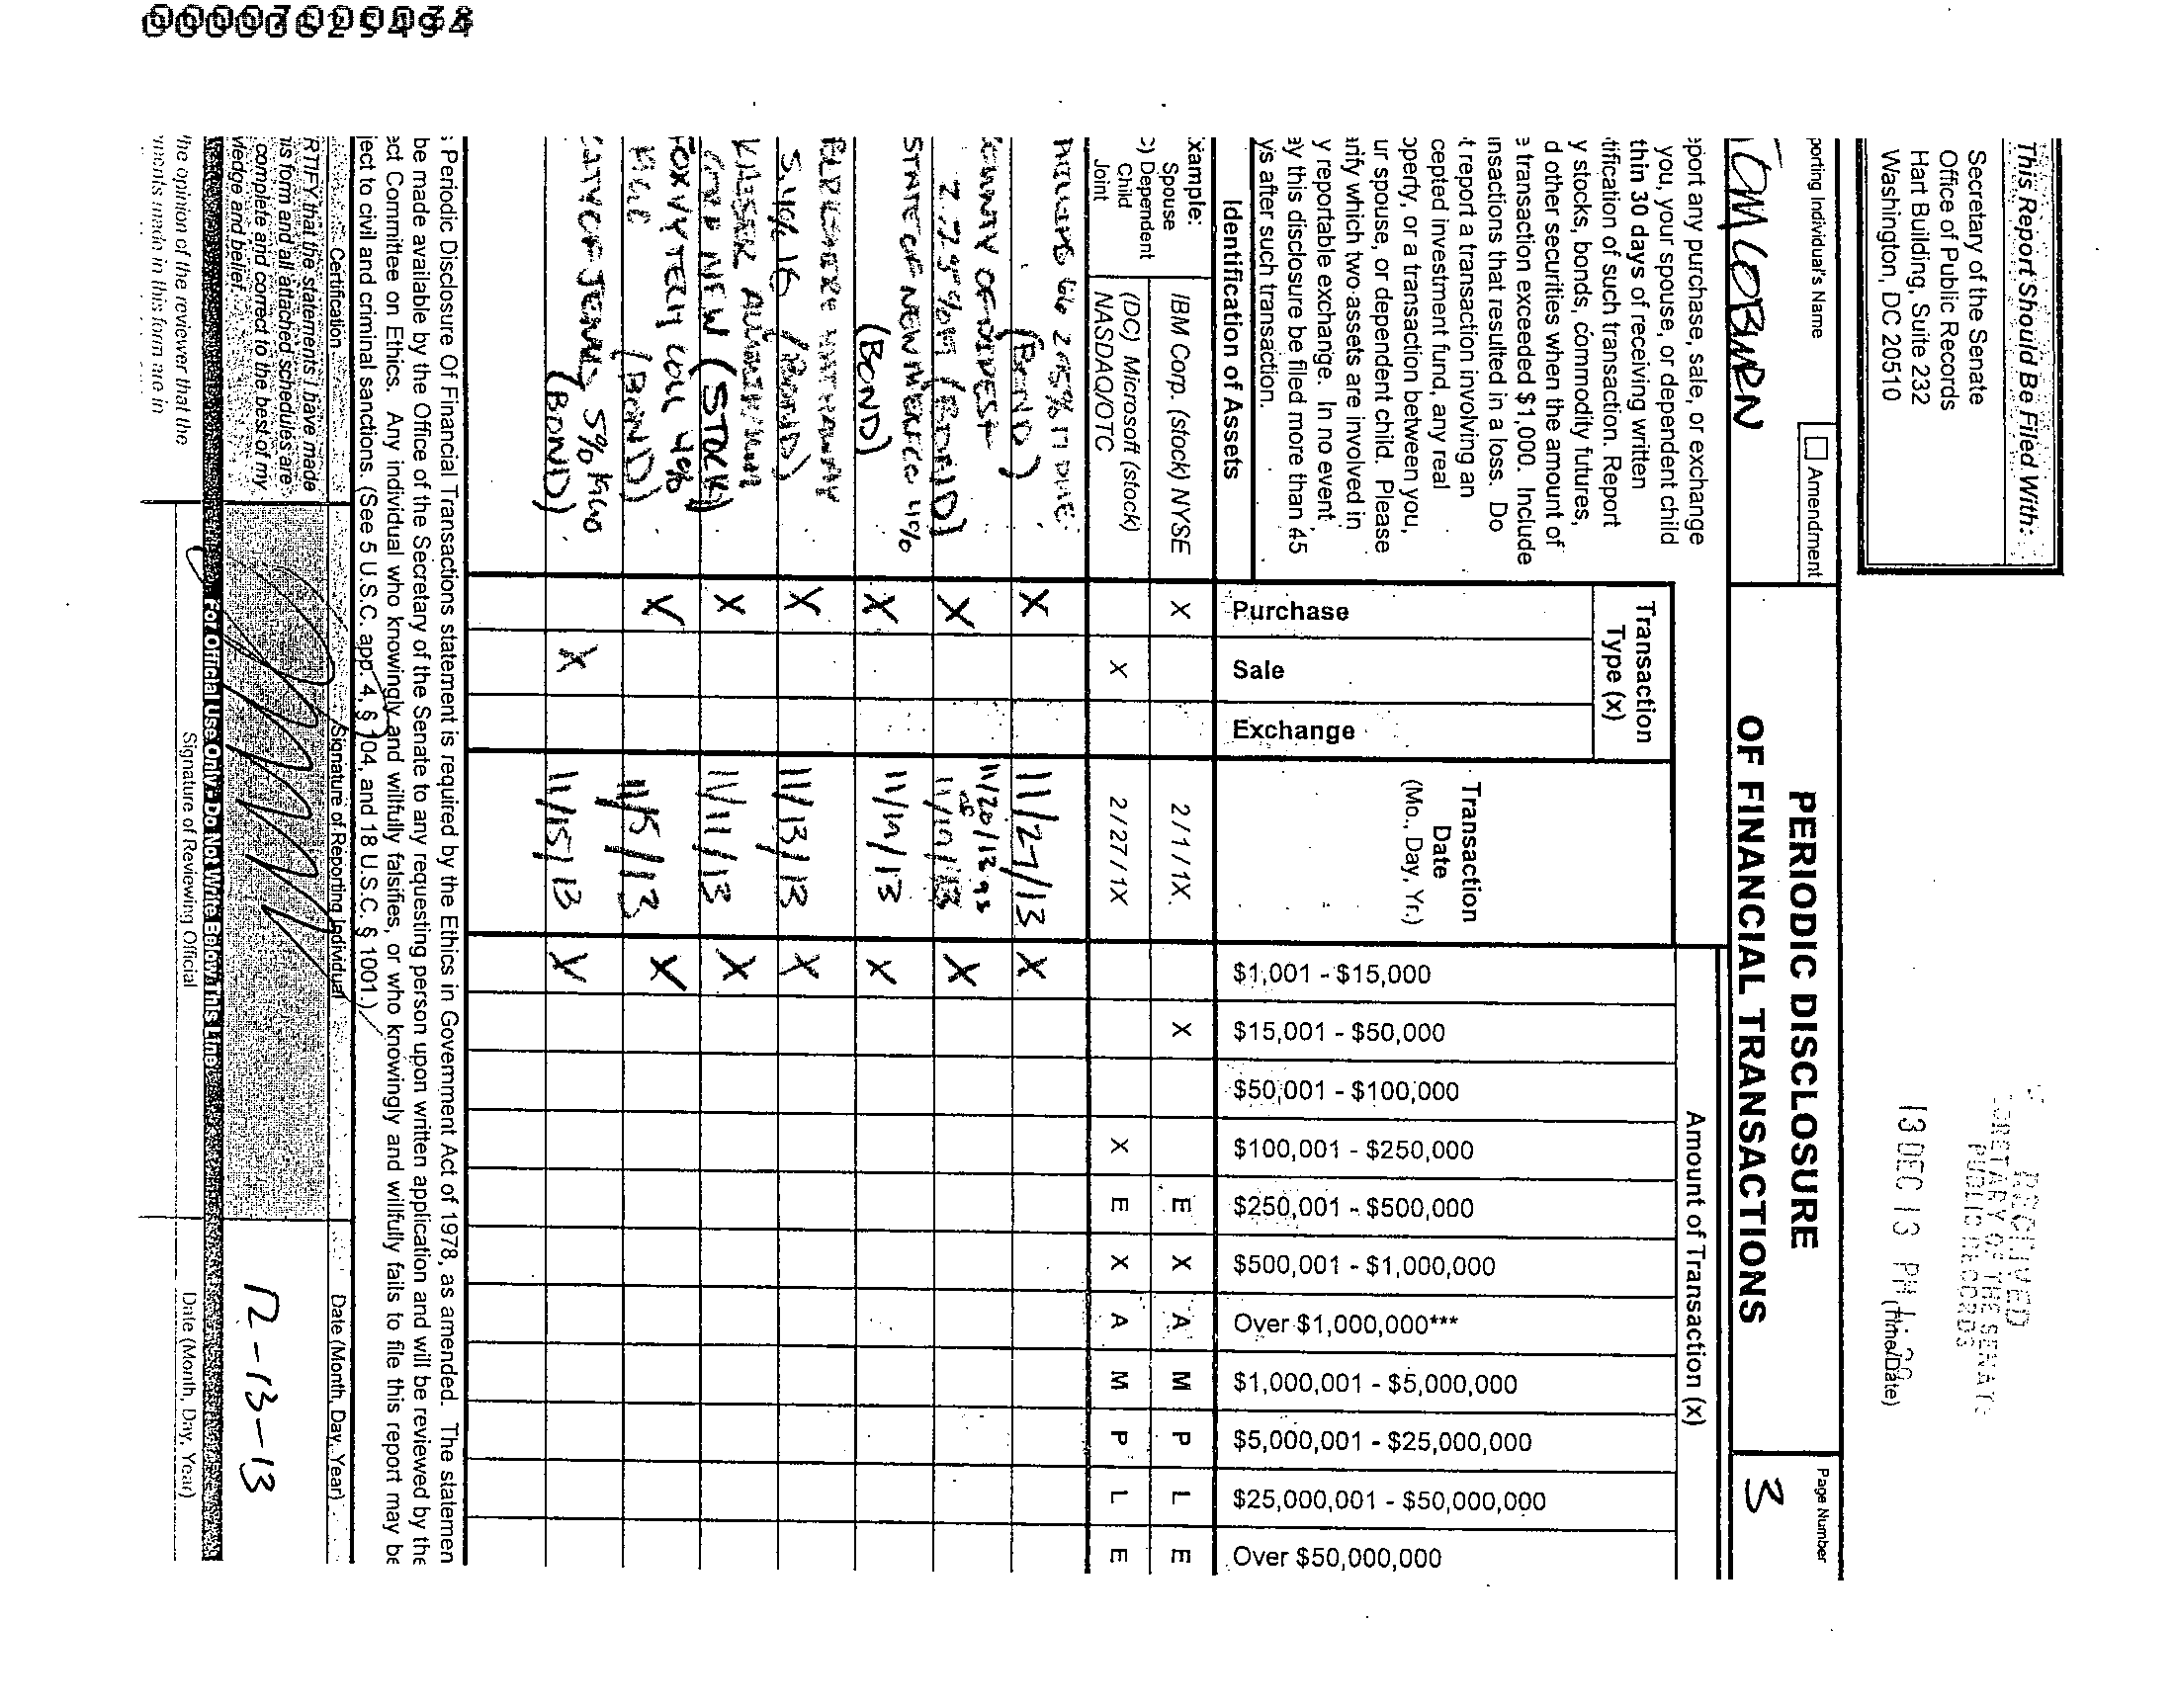 This Report Should Be Filed With:
Secretary of the Senate
Office of Public Records
Hart Building, Suite 232
Washington, DC 20510
RECEIVED
SECRETARY OF THE SENATE
PUBLIC RECORDS
13 DEC 13 PM 1:
(Time/Date)
porting Individual's Name
Amendment
TOM COBURN
PERIODIC DISCLOSURE
OF FINANCIAL TRANSACTIONS
Page Number
3
eport any purchase, sale, or exchange
you, your spouse, or dependent child
thin 30 days of receiving written
tification of such transaction. Report
y stocks, bonds, commodity futures,
d other securities when the amount of
e transaction exceeded $1,000. Include
insactions that resulted in a loss. Do
t report a transaction involving an
cepted investment fund, any real
operty, or a transaction between you,
ur spouse, or dependent child. Please
arify which two assets are involved in
y reportable exchange. In no event
ay this disclosure be filed more than 45
ys after such transaction.
Identification of Assets
Transaction
Type (x)
Purchase
Sale
Exchange
Transaction
Date
(Mo., Day, Yr.)
Amount of Transaction (x)
$1,001 - $15,000
$15,001 - $50,000
$50,001 - $100,000
$100,001 - $250,000
$250,001 - $500,000
$500,001 - $1,000,000
Over $1,000,000***
$1,000,001 - $5,000,000
$5,000,001 - $25,000,000
$25,000,001 - $50,000,000
Over $50,000,000
xample:
Spouse
c) Dependent
Child
Joint
IBM Corp. (stock) NYSE X 2/1/1X X E X A M P L E
(DC) Microsoft (stock)
NASDAQ/OTC X 2/27/1X X E X A M P L E
(BOND) X 11/27/13 X
COUNTY OF
(BOND) X 11/20/13 X
STATE OF NEW MEXICO 4%
(BOND) X 11/19/13 X
BERKSHIRE HATHAWAY
(BOND) X 11/13/13 X
KAISER ALUMINUM
NEW (STOCK) X 11/11/13 X
4%
(BOND) X 11/15/13 X
5%
(BOND) X 11/15/13 X
s Periodic Disclosure Of Financial Transactions statement is required by the Ethics in Government Act of 1978, as amended. The statemen
be made available by the Office of the Secretary of the Senate to any requesting person upon written application and will be reviewed by the
ect Committee on Ethics. Any individual who knowingly and willfully falsifies, or who knowingly and willfully fails to file this report may be
ject to civil and criminal sanctions. (See 5 U.S.C. app. 4, § 104, and 18 U.S.C. § 1001.)
Certification
Signature of Reporting Individual
Date (Month, Day, Year)
RTIFY that the statements I have made
is form and all attached schedules are
complete and correct to the best of my
vledge and belief.
12-13-13
For Official Use Only - Do Not Write Below This Line
he opinion of the reviewer that the
ments made in this form are in
Signature of Reviewing Official
Date (Month, Day, Year)